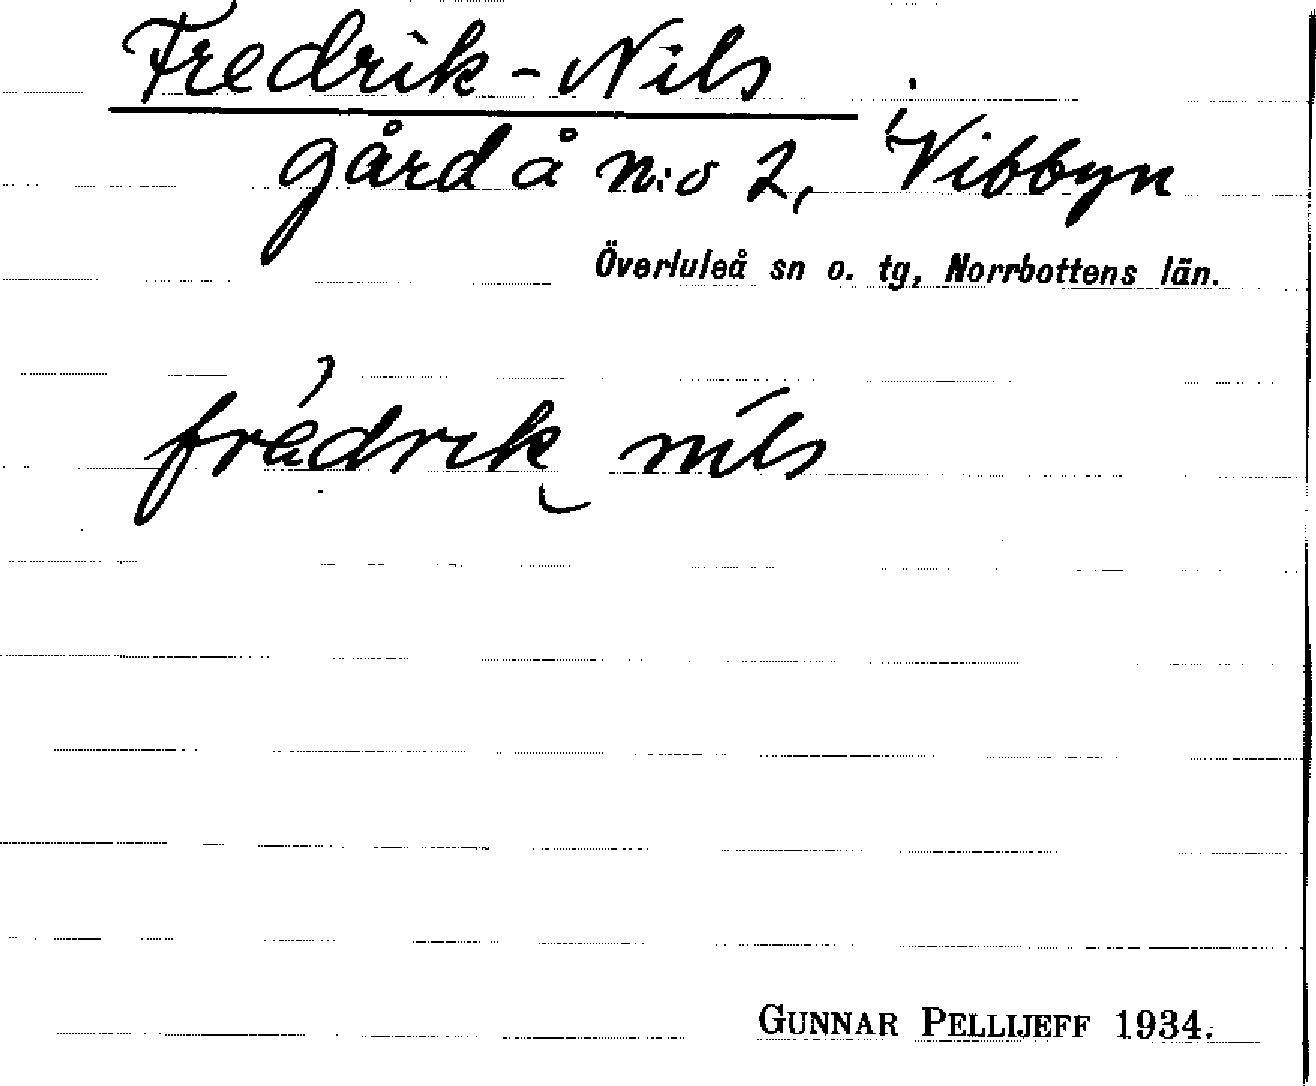 Fredrik-Nils
gård å n:o 2, Vibbyn
Överluleå sn o. tg, Norrbottens län.
frédrik níls
GUNNAR PELLIJEFF 1934.